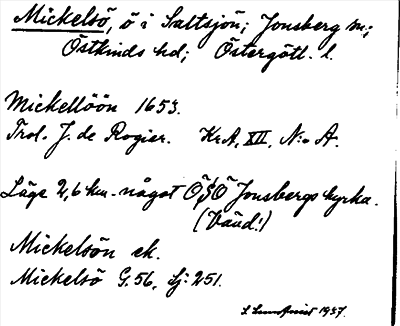 Mickelsö, ö i Saltsjön; Jonsberg sn;
Östkinds hd; Östergötl. l.
Mickellöön 1653.
Trol. J. de Rogier. KrA, XII, N:o A.
Läge 2,6 km. något ÖSÖ Jonsbergs kyrka.
(Vänd!)
Mickelsön ek.
Mickelsö G. 56, Sj: 251.
1937.